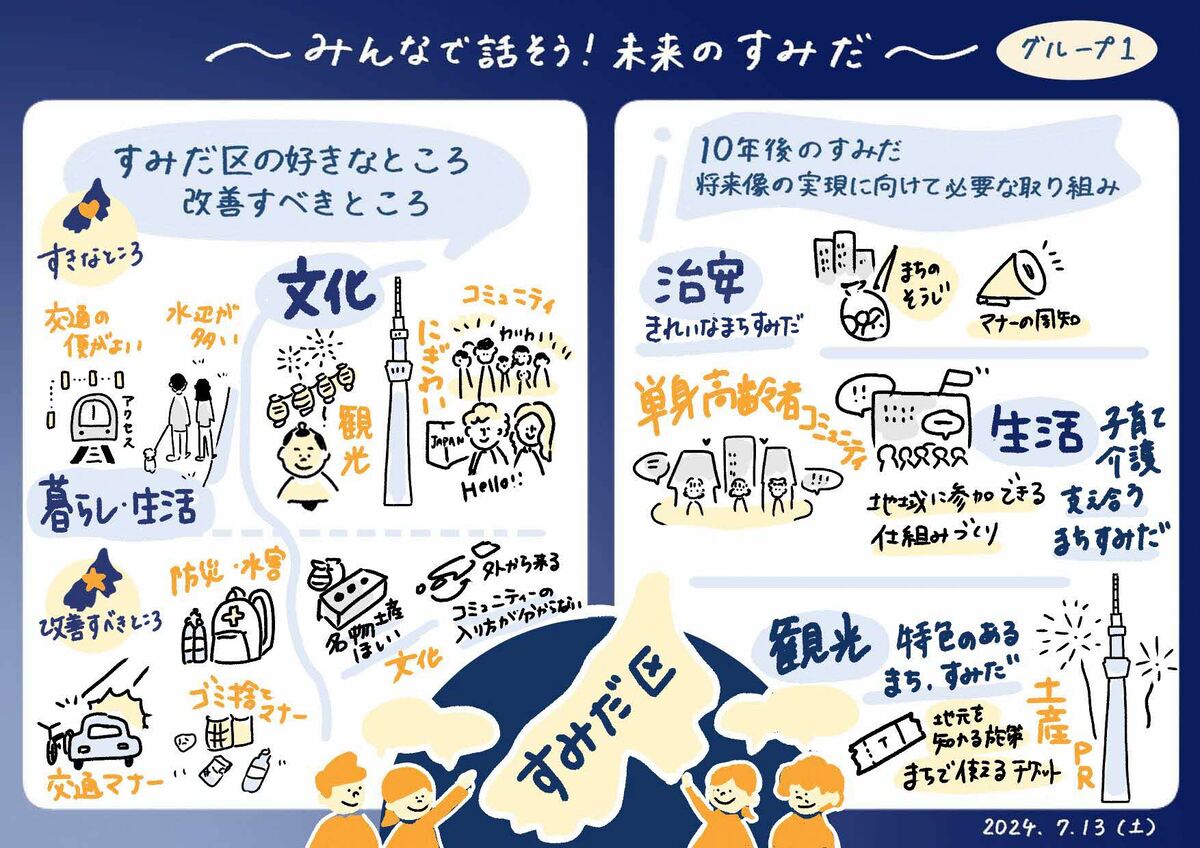 〜みんなで話そう！未来のすみだ〜
グループ1
すみだ区の好きなところ
改善すべきところ
すきなところ
文化
交通の
便がよい
水辺が
多い
アクセス
観光
にぎわい
コミュニティ
わいわい
JAPAN
Hello!!
暮らし・生活
改善すべきところ
防災・水害
ゴミ捨て
マナー
交通マナー
名物土産
ほしい
外から来る
コミュニティーの
入り方が分からない
文化
10年後のすみだ
将来像の実現に向けて必要な取り組み
治安
きれいなまちすみだ
まちの
そうじ
マナーの周知
単身高齢者
コミュニティ
生活
子育て
介護
支え合う
まちすみだ
地域に参加できる
仕組みづくり
観光
特色のある
まち、すみだ
地元を
知れる施策
まちで使えるチケット
土産
PR
すみだ区
2024. 7.13 (土)